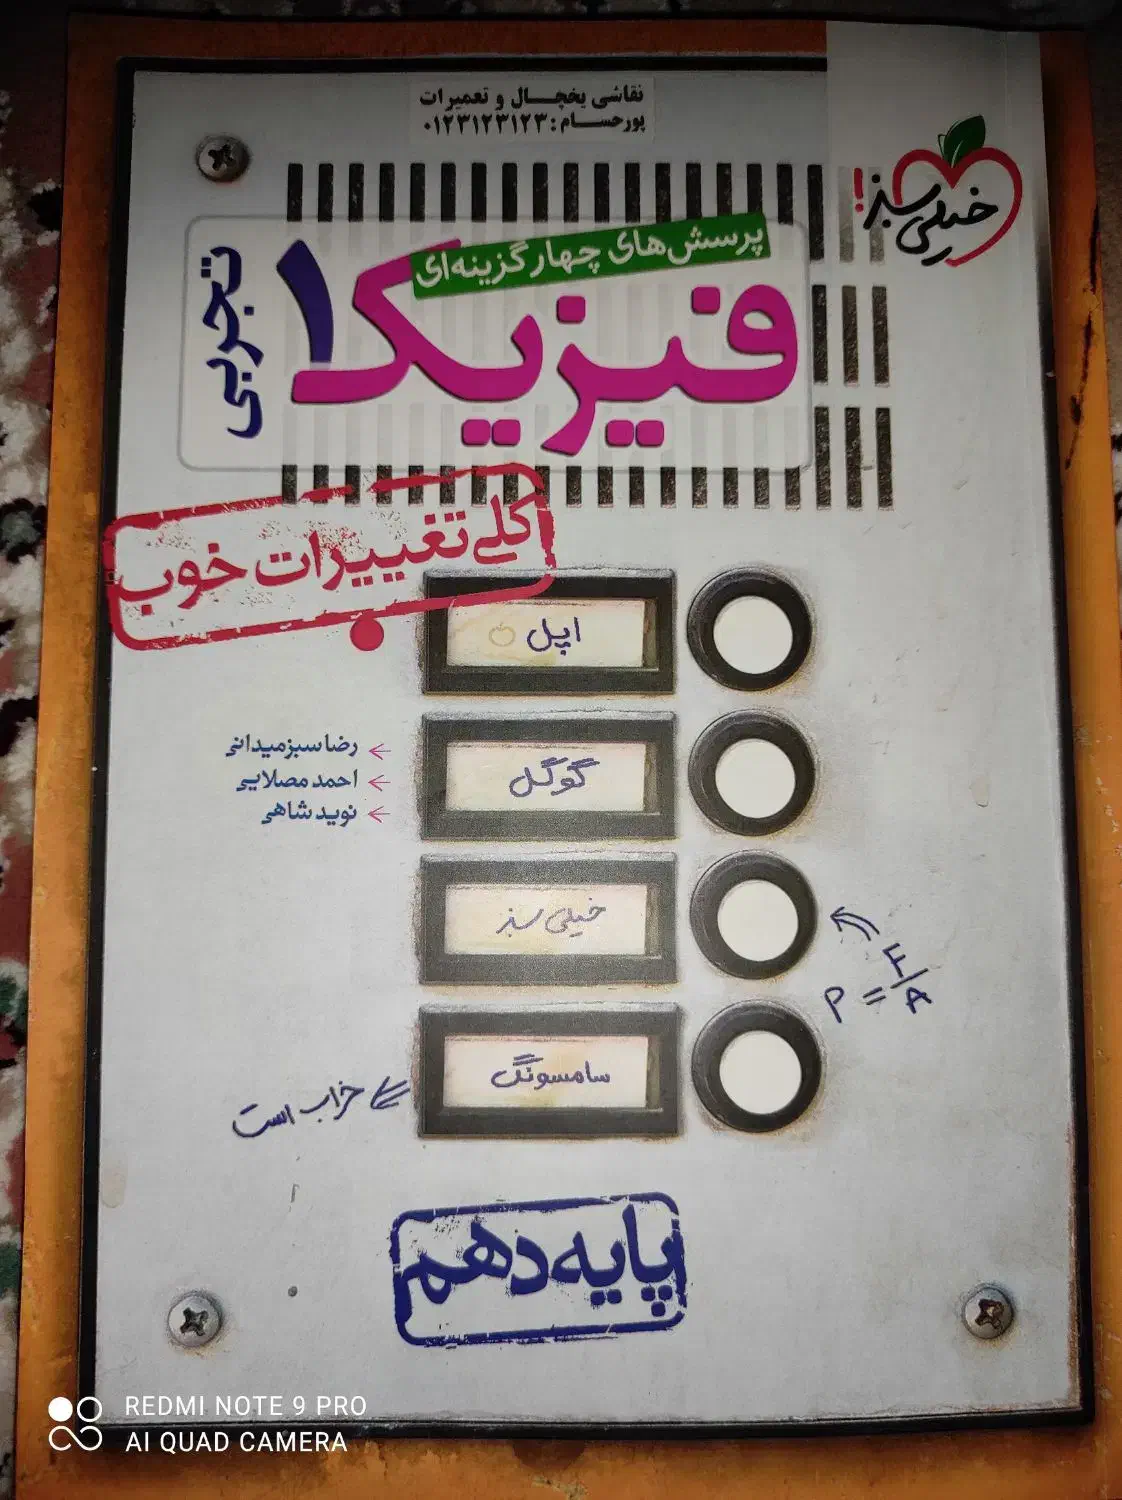 نقاشی یخچال و تعمیرات
پورحسام: ۰۱۲۳۱۲۳۱۲۳
خیلی سبز!
پرسش‌های چهارگزینه‌ای
فیزیک ۱
تجربی
کلی تغییرات خوب
اپل
رضا سبزمیدانی
احمد مصلایی
نوید شاهی
گوگل
خیلی سبز
P = F/A
سامسونگ
خراب است
پایه دهم
REDMI NOTE 9 PRO
AI QUAD CAMERA